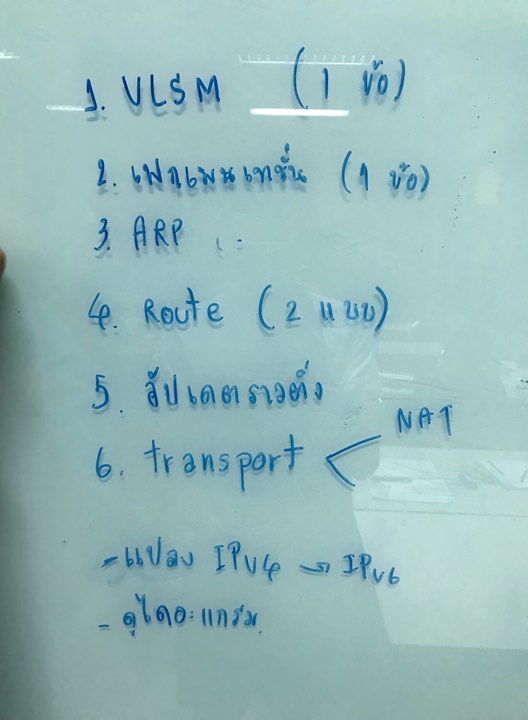 1. VLSM (1 ข้อ)
2. เฟรกเมนเทชั่น (1 ข้อ)
3. ARP
4. Route (2 แบบ)
5. อัปเดตราวติ้ง
NAT
6. transport
- แปลง IPv4 → IPv6
- ดูไดอะแกรม